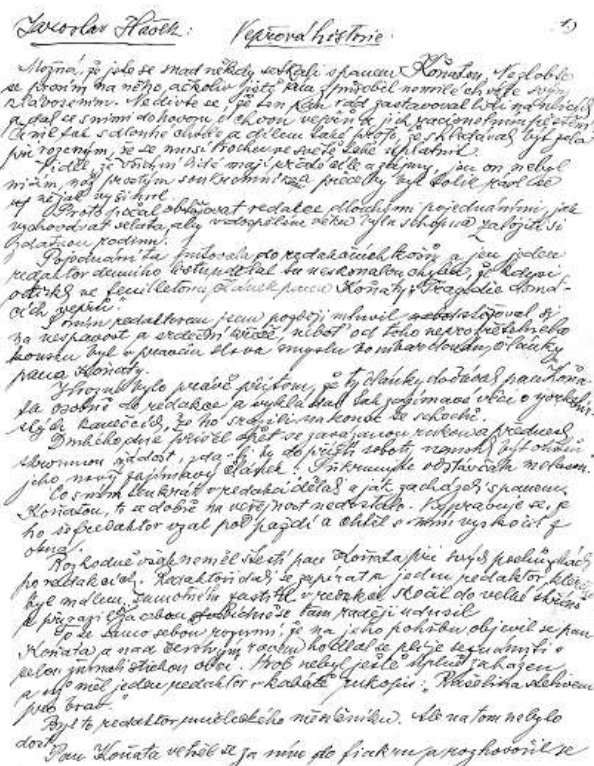 Jaroslav Hašek: Vepřová historie. 1)
Možná, že jste se snad někdy setkali s panem Koňatou. Nezlobte
se prosím na něho, ačkoliv jistě vám způsobil nemilé chvíle svým
. Nedivte se, že ten pan rád zastavoval lidi na ulicích
a dal se s nimi do hovoru o chovu vepřů a jich racionelním
Činil tak z dlouhé chvíle a dílem také proto, že shledával být zcela
přirozeným, že se musí trochu ve světě také uplatnit.
Viděl, že všichni lidé mají své zájmy, jen on nebyl
ničím, než prostým soukromníkem, přece by byl tolik rád
též nějak vynikl.
Proto počal obtěžovat redakce dlouhými pojednáními, jak
vychovávat selata, aby v dospělém věku byla schopna založit si
řádnou rodinu.
Pojednání ta putovala do redakčních košů a jen jeden
redaktor denního listu udělal tu neskonalou chybu, že kdysi
otiskl ve feuilletonu článek pana Koňaty „Tragedie domá-
cích vepřů“.
S tím redaktorem jsem později mluvil stěžoval si
na nespavost a srdeční vadu, neboť od toho neprozřetelného
kousku byl v pravém slova smyslu bombardován články
pana Koňaty.
Hrozné bylo právě přitom, že ty články donášel pan Koňa-
ta osobně do redakce a vykládal tak zajímavé věci o yorkshir-
ských kanečcích, že ho srazili nakonec se schodů.
Druhého dne přišel opět se zavázanou rukou a přednesl
skromnou žádost, zda-li by do příští soboty nemohl být otištěn
jeho nový zajímavý článek: „Přikrmujte odstavčata melasou“.
Co s ním tenkrát v redakci dělali a jak zacházeli s panem
Koňatou, to se dobře na veřejnost nedostalo. Vypravuje se, že
ho šéfredaktor vzal pod paždí a chtěl s ním vyskočit z
okna.
Rozhodně však neměl štěstí pan Koňata při svých pochůzkách
po redakcích. Redaktoři dali se zapírat a jeden redaktor, který
byl mdlem, samoten zastižen v redakci skočil do velké skříně
a přirazil za sebou se tam raději udusil.
To se samo sebou rozumí, že na jeho pohřbu objevil se pan
Koňata a nad čerstvým rovem hodlal se blíže seznámiti s
celou žurnalistickou obcí. Hrob nebyl ještě úplně zaházen
a už měl jeden redaktor v kabátě rukopis: „Vaselina sádlem
pro brav“.
Byl to redaktor uměleckého měsíčníku. Ale na tom nebylo
dost.
Pan Koňata vetřel se za ním do fiakru a rozhovořil se